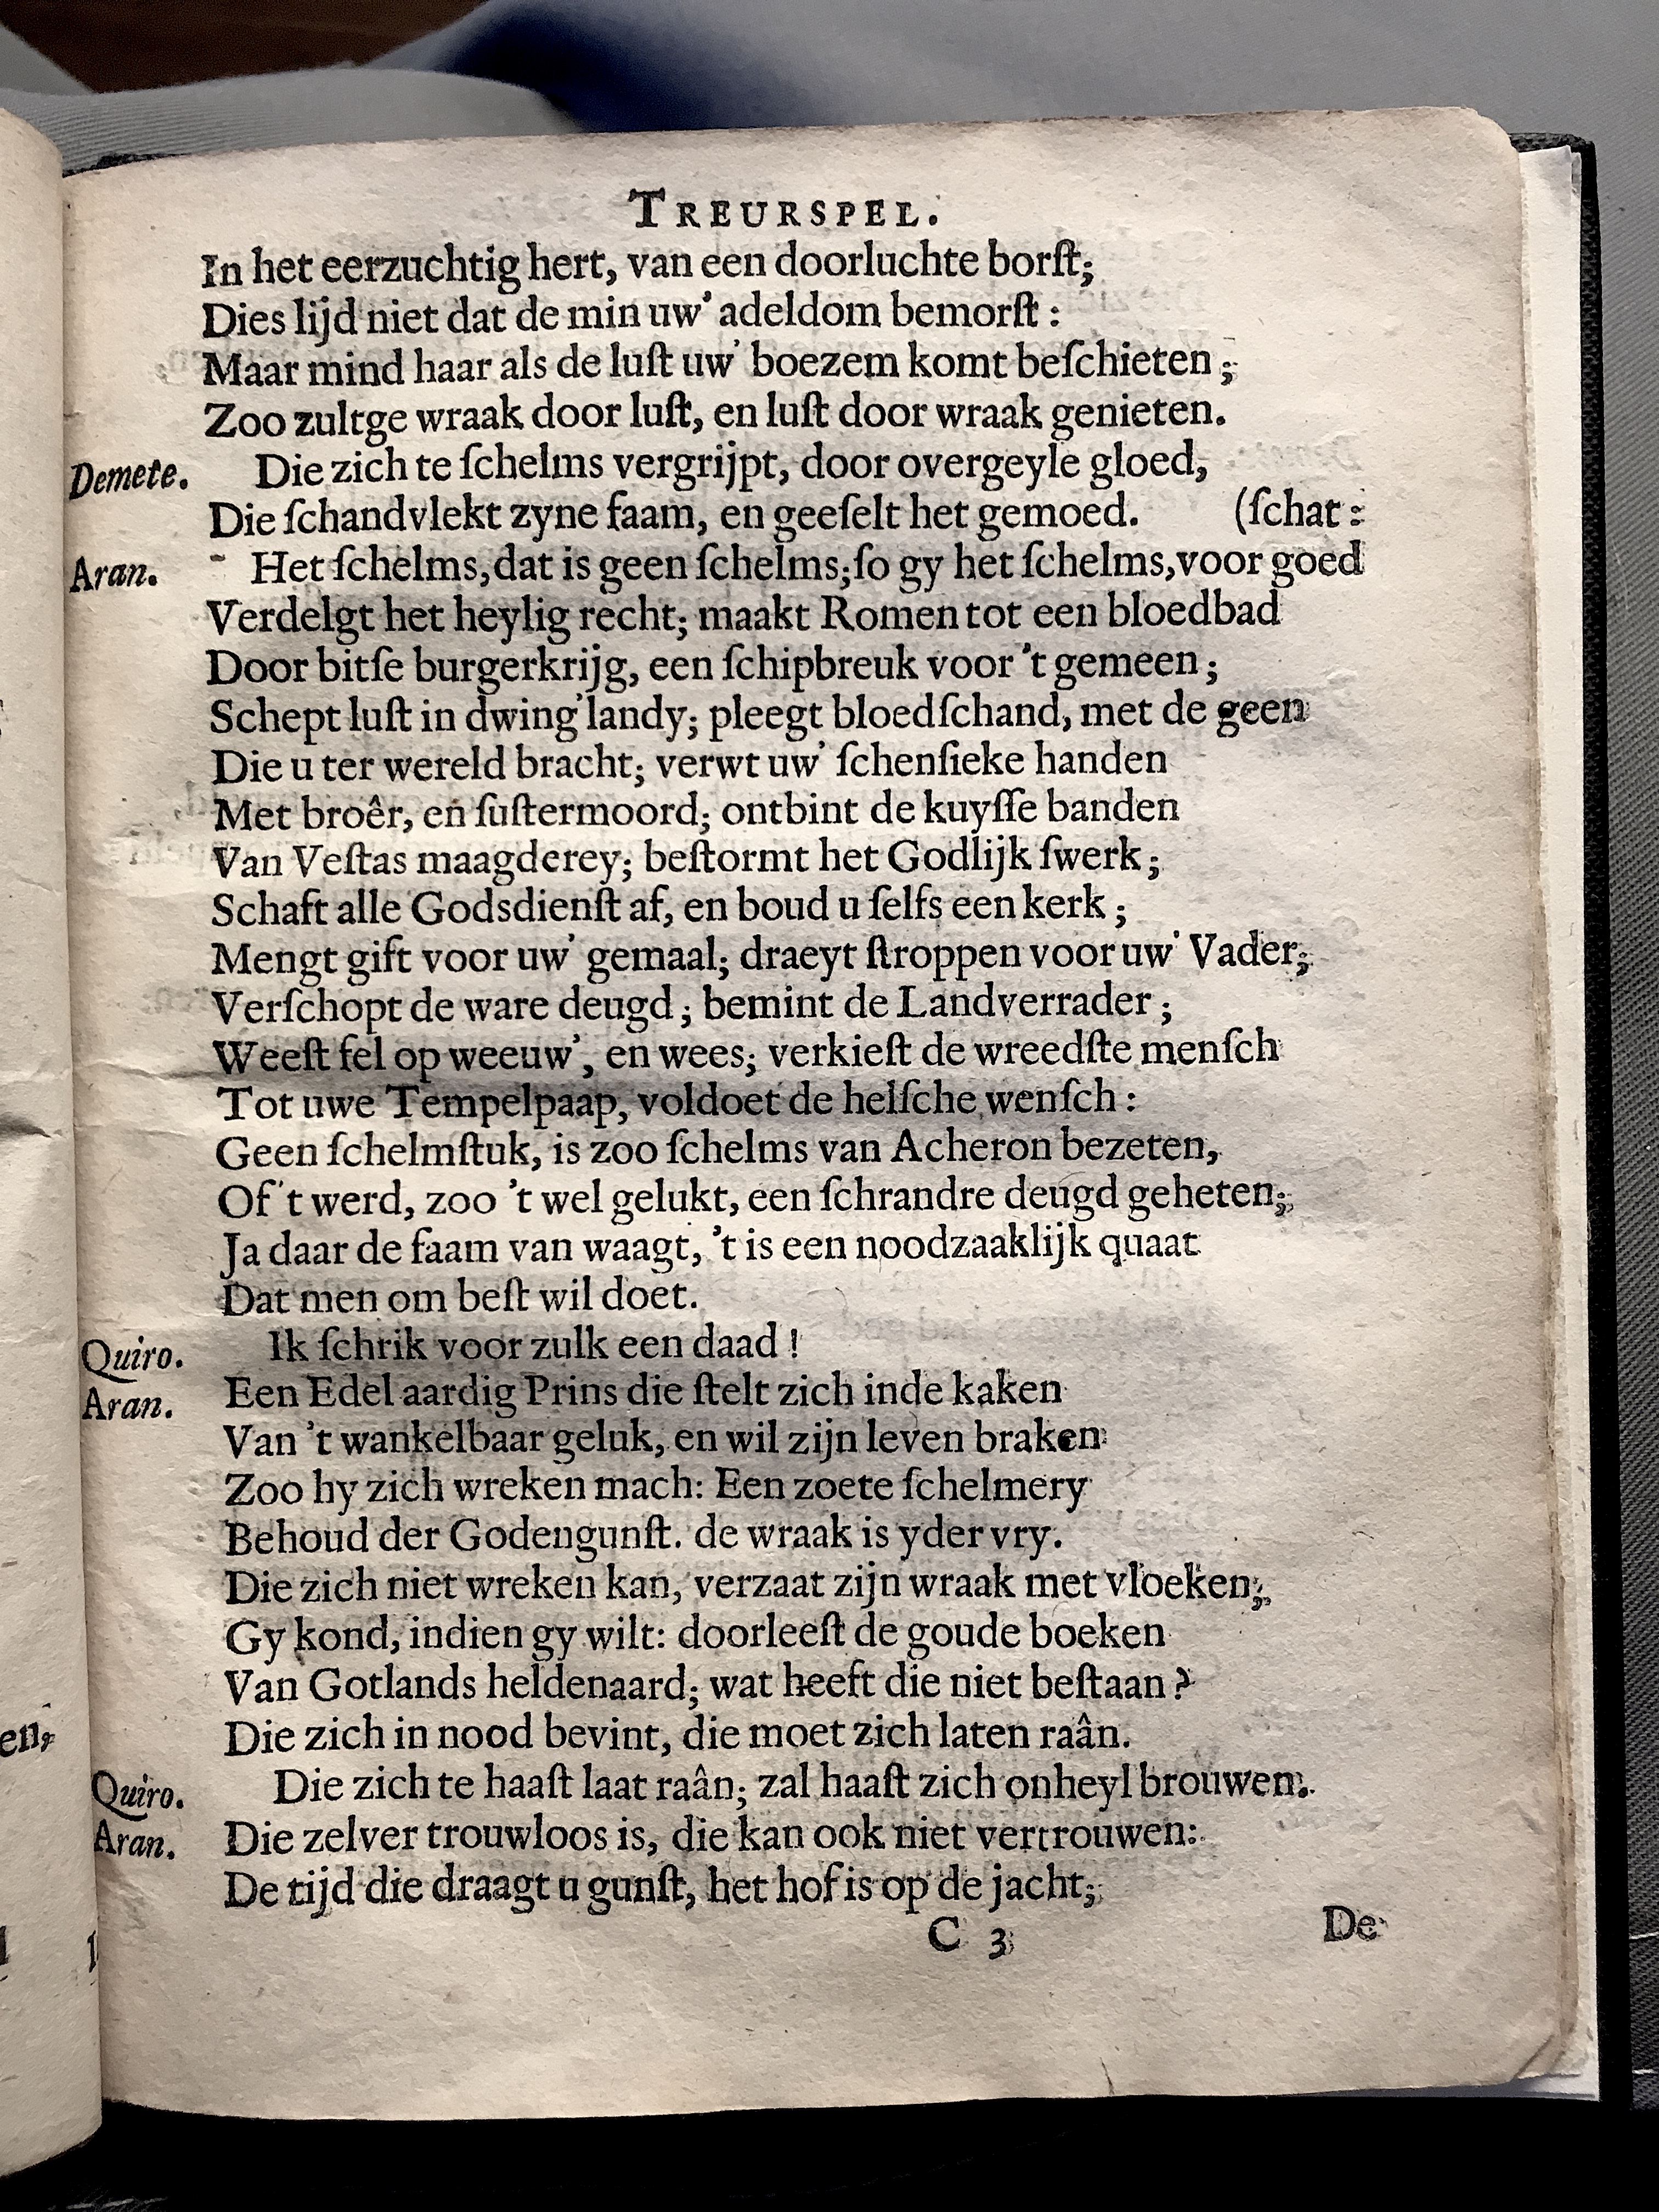 TREURSPEL.
In het eerzuchtig hert, van een doorluchte borſt;
Dies lijd niet dat de min uw' adeldom bemorſt :
Maar mind haar als de luſt uw' boezem komt beſchieten ;
Zoo zultge wraak door luſt, en luſt door wraak genieten.
Demete. Die zich te ſchelms vergrijpt, door overgeyle gloed,
Die ſchandvlekt zyne faam, en geeſelt het gemoed. (ſchat :
Aran. Het ſchelms, dat is geen ſchelms; ſo gy het ſchelms, voor goed
Verdelgt het heylig recht; maakt Romen tot een bloedbad
Door bitſe burgerkrijg, een ſchipbreuk voor 't gemeen ;
Schept luſt in dwing'landy; pleegt bloedſchand, met de geen
Die u ter wereld bracht; verwt uw' ſchenſieke handen
Met broêr, en ſuſtermoord; ontbint de kuyſſe banden
Van Veſtas maagderey; beſtormt het Godlijk ſwerk ;
Schaft alle Godsdienſt af, en boud u ſelfs een kerk ;
Mengt gift voor uw' gemaal; draeyt ſtroppen voor uw' Vader;
Verſchopt de ware deugd ; bemint de Landverrader ;
Weeſt fel op weeuw', en wees; verkieſt de wreedſte menſch
Tot uwe Tempelpaap, voldoet de helſche wenſch :
Geen ſchelmſtuk, is zoo ſchelms van Acheron bezeten,
Of 't werd, zoo 't wel gelukt, een ſchrandre deugd geheten;
Ja daar de faam van waagt, 't is een noodzaaklijk quaat
Dat men om beſt wil doet.
Quiro. Ik ſchrik voor zulk een daad !
Aran. Een Edel aardig Prins die ſtelt zich inde kaken
Van 't wankelbaar geluk, en wil zijn leven braken
Zoo hy zich wreken mach: Een zoete ſchelmery
Behoud der Godengunſt. de wraak is yder vry.
Die zich niet wreken kan, verzaat zijn wraak met vloeken;
Gy kond, indien gy wilt: doorleeſt de goude boeken
Van Gotlands heldenaard; wat heeft die niet beſtaan ?
Die zich in nood bevint, die moet zich laten raân.
Quiro. Die zich te haaſt laat raân; zal haaſt zich onheyl brouwen.
Aran. Die zelver trouwloos is, die kan ook niet vertrouwen:
De tijd die draagt u gunſt, het hof is op de jacht;
C 3 De